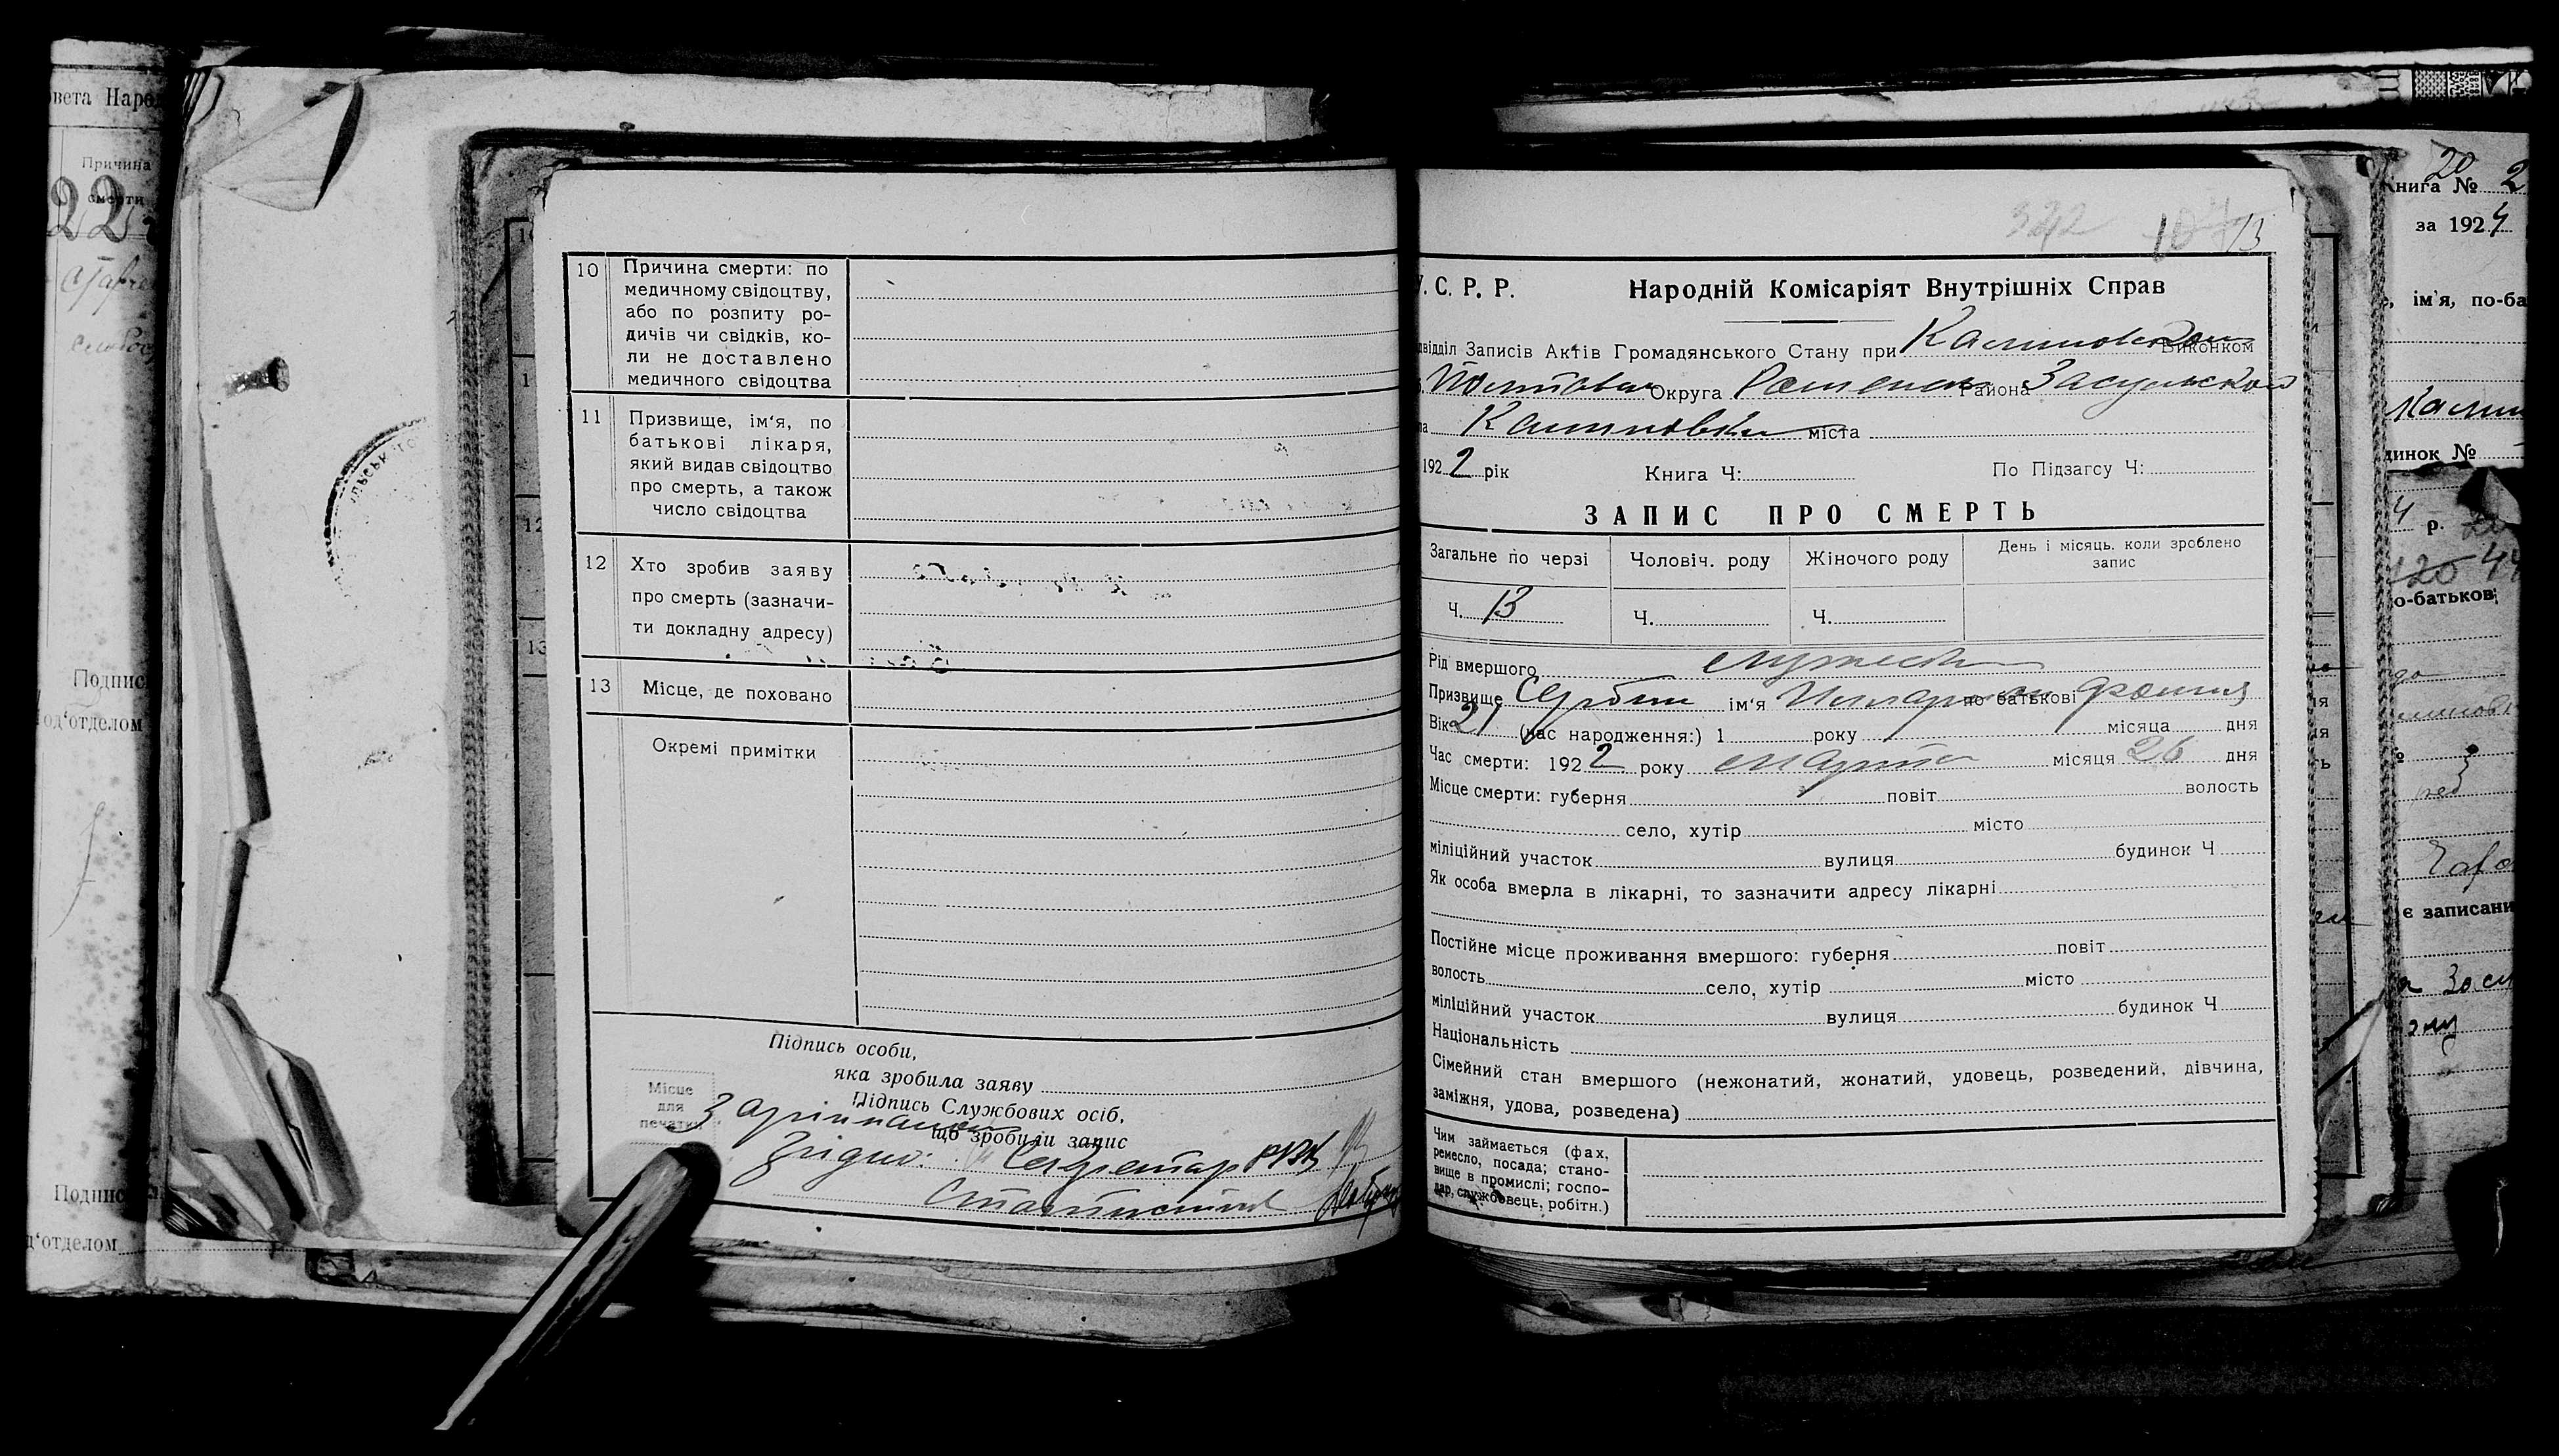 овета Наро
Причина
смерти
22
Подпис
од‘отделом
Подпис
д‘отделом
10 Причина смерти: по
медичному свідоцтву,
або по розпиту ро-
дичів чи свідків, ко-
ли не доставлено
медичного свідоцтва
11 Призвище, ім‘я, по
батькові лікаря,
який видав свідоцтво
про смерть, а також
число свідоцтва
12 Хто зробив заяву
про смерть (зазначи-
ти докладну адресу)
13 Місце, де поховано
Окремі примітки
Підпись особи,
яка зробила заяву
Місце
для
печатки
Підпись Службових осіб,
що зробили запис
З орігіналом
Згідно: Секретар РВК
Статистик
372 107 13
У. С. Р. Р. Народній Комісаріят Внутрішніх Справ
двідділ Записів Актів Громадянського Стану при Калиновском Виконком
Полтавск Округа Роменск Района Засульского
ла Калиновки міста
1922 рік Книга Ч: По Підзагсу Ч:
ЗАПИС ПРО СМЕРТЬ
Загальне по черзі Чоловіч. роду Жіночого роду День і місяць. коли зроблено
запис
Ч. 13 Ч. Ч.
Рід вмершого мужеск
Призвище Сербин ім‘я Илларион по батькові Фомич
Вік 21 (час народження:) 1 року місяца дня
Час смерти: 1922 року марта місяця 26 дня
Місце смерти: губерня повіт волость
село, хутір місто
міліційний участок вулиця будинок Ч
Як особа вмерла в лікарні, то зазначити адресу лікарні
Постійне місце проживання вмершого: губерня повіт
волость село, хутір місто
міліційний участок вулиця будинок Ч
Національність
Сімейний стан вмершого (нежонатий, жонатий, удовець, розведений, дівчина,
заміжня, удова, розведена)
Чим займається (фах,
ремесло, посада; стано-
вище в промислі; госпо-
дар, службовець, робітн.)
Книга № 20 2
за 1924
, ім‘я, по-ба
Калин
динок №
4 р.
120 44
о-батькові
є записани